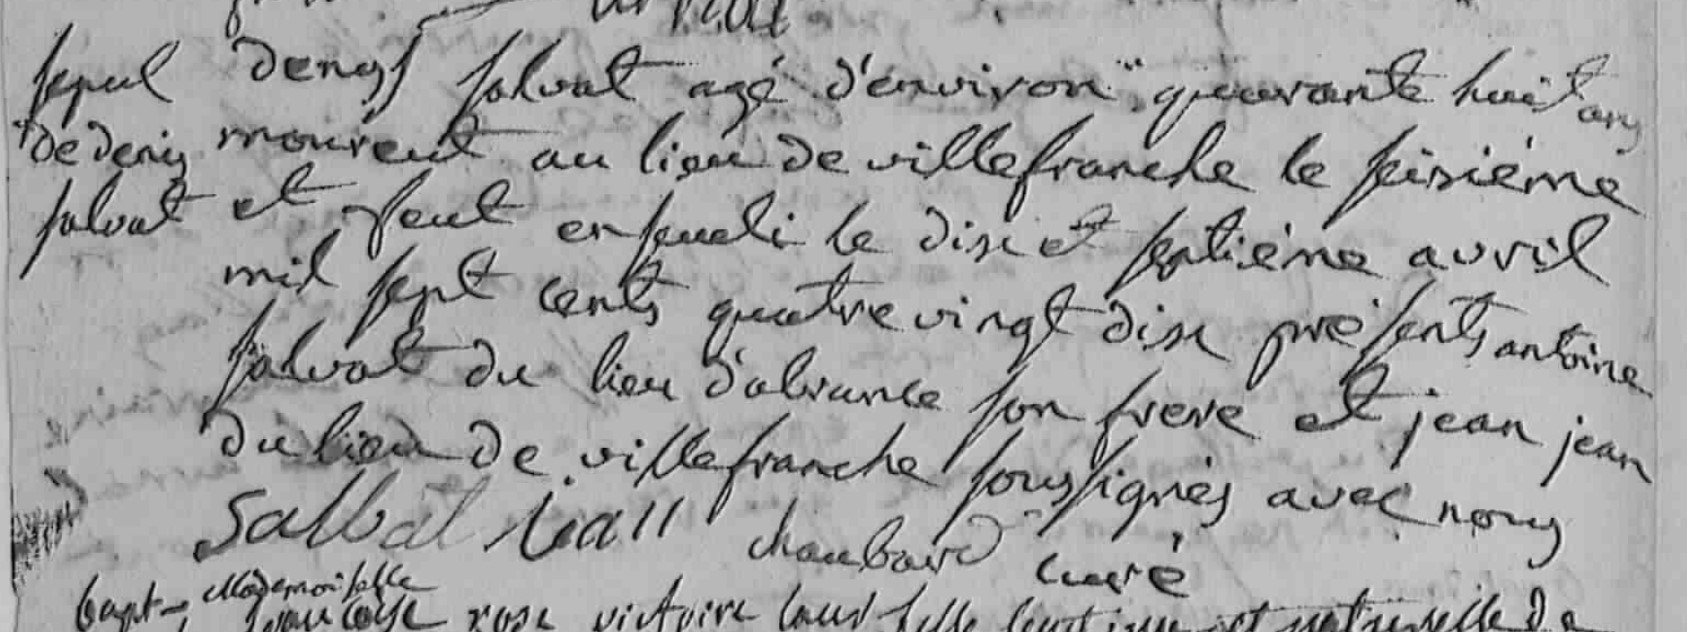 sepul denys salvat agé d'environ quarante huit ans
de denis moureut au lieu de villefranche le seisiéme
salvat et feut enseveli le dix et septiéme avril
mil sept cents quatre vingt dix présents antoine
salvat du lieu d'alrance son frere et jean jean
du lieu de villefranche soussignés avec nous
Salvat Jean chaubard curé
bapt- Mademoiselle
rose victoire fille legitime et naturelle de